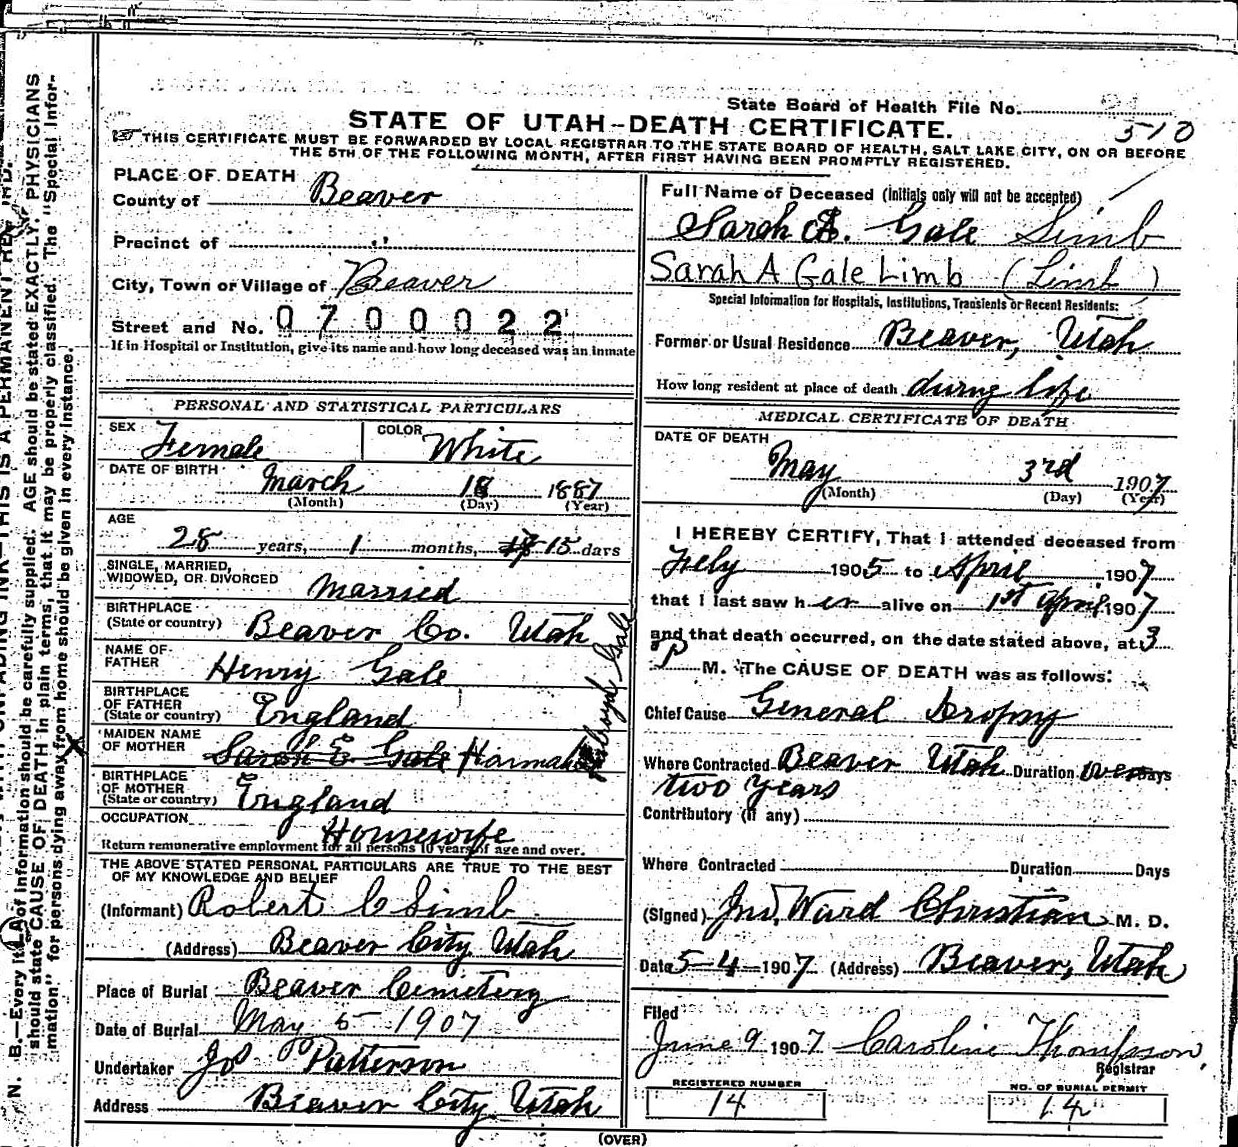 State Board of Health File No.
510
STATE OF UTAH--DEATH CERTIFICATE.
THIS CERTIFICATE MUST BE FORWARDED BY LOCAL REGISTRAR TO THE STATE BOARD OF HEALTH, SALT LAKE CITY, ON OR BEFORE
THE 5TH OF THE FOLLOWING MONTH, AFTER FIRST HAVING BEEN PROMPTLY REGISTERED.
PLACE OF DEATH
County of Beaver
Precinct of "
City, Town or Village of Beaver
Street and No. 0700022
If in Hospital or Institution, give its name and how long deceased was an inmate
PERSONAL AND STATISTICAL PARTICULARS
SEX Female COLOR White
DATE OF BIRTH March 18 1887
(Month) (Day) (Year)
AGE
28 years, 1 months, 15 days
SINGLE, MARRIED,
WIDOWED, OR DIVORCED Married
BIRTHPLACE
(State or country) Beaver Co. Utah
NAME OF
FATHER Henry Gale
BIRTHPLACE
OF FATHER
(State or country) England
MAIDEN NAME
OF MOTHER Sarah E. Gale Hannah
Gale
BIRTHPLACE
OF MOTHER
(State or country) England
OCCUPATION Housewife
Return remunerative employment for all persons 10 years of age and over.
THE ABOVE STATED PERSONAL PARTICULARS ARE TRUE TO THE BEST
OF MY KNOWLEDGE AND BELIEF
(Informant) Robert C Limb
(Address) Beaver City Utah
Place of Burial Beaver Cemetery
Date of Burial May 5 1907
Undertaker Patterson
Address Beaver City Utah
Full Name of Deceased (Initials only will not be accepted)
Sarah A. Gale Limb
Sarah A Gale Limb (Limb)
Special Information for Hospitals, Institutions, Transients or Recent Residents:
Former or Usual Residence Beaver, Utah
How long resident at place of death during life
MEDICAL CERTIFICATE OF DEATH
DATE OF DEATH
May 3rd 1907
(Month) (Day) (Year)
I HEREBY CERTIFY, That I attended deceased from
1905 to April 1907
that I last saw her alive on 1st April 1907
and that death occurred, on the date stated above, at 3
P M. The CAUSE OF DEATH was as follows:
Chief Cause General Dropsy
Where Contracted Beaver Utah Duration over Days
two years
Contributory (if any)
Where Contracted Duration Days
(Signed) Jno. Ward Christian M. D.
Date 5-4-1907 (Address) Beaver, Utah
Filed
June 9 1907 Caroline Thompson,
Registrar
REGISTERED NUMBER
14
NO. OF BURIAL PERMIT
14
(OVER)
should state CAUSE OF DEATH in plain terms, that it may be properly classified. The "Special Infor-
mation" for persons dying away from home should be given in every instance.